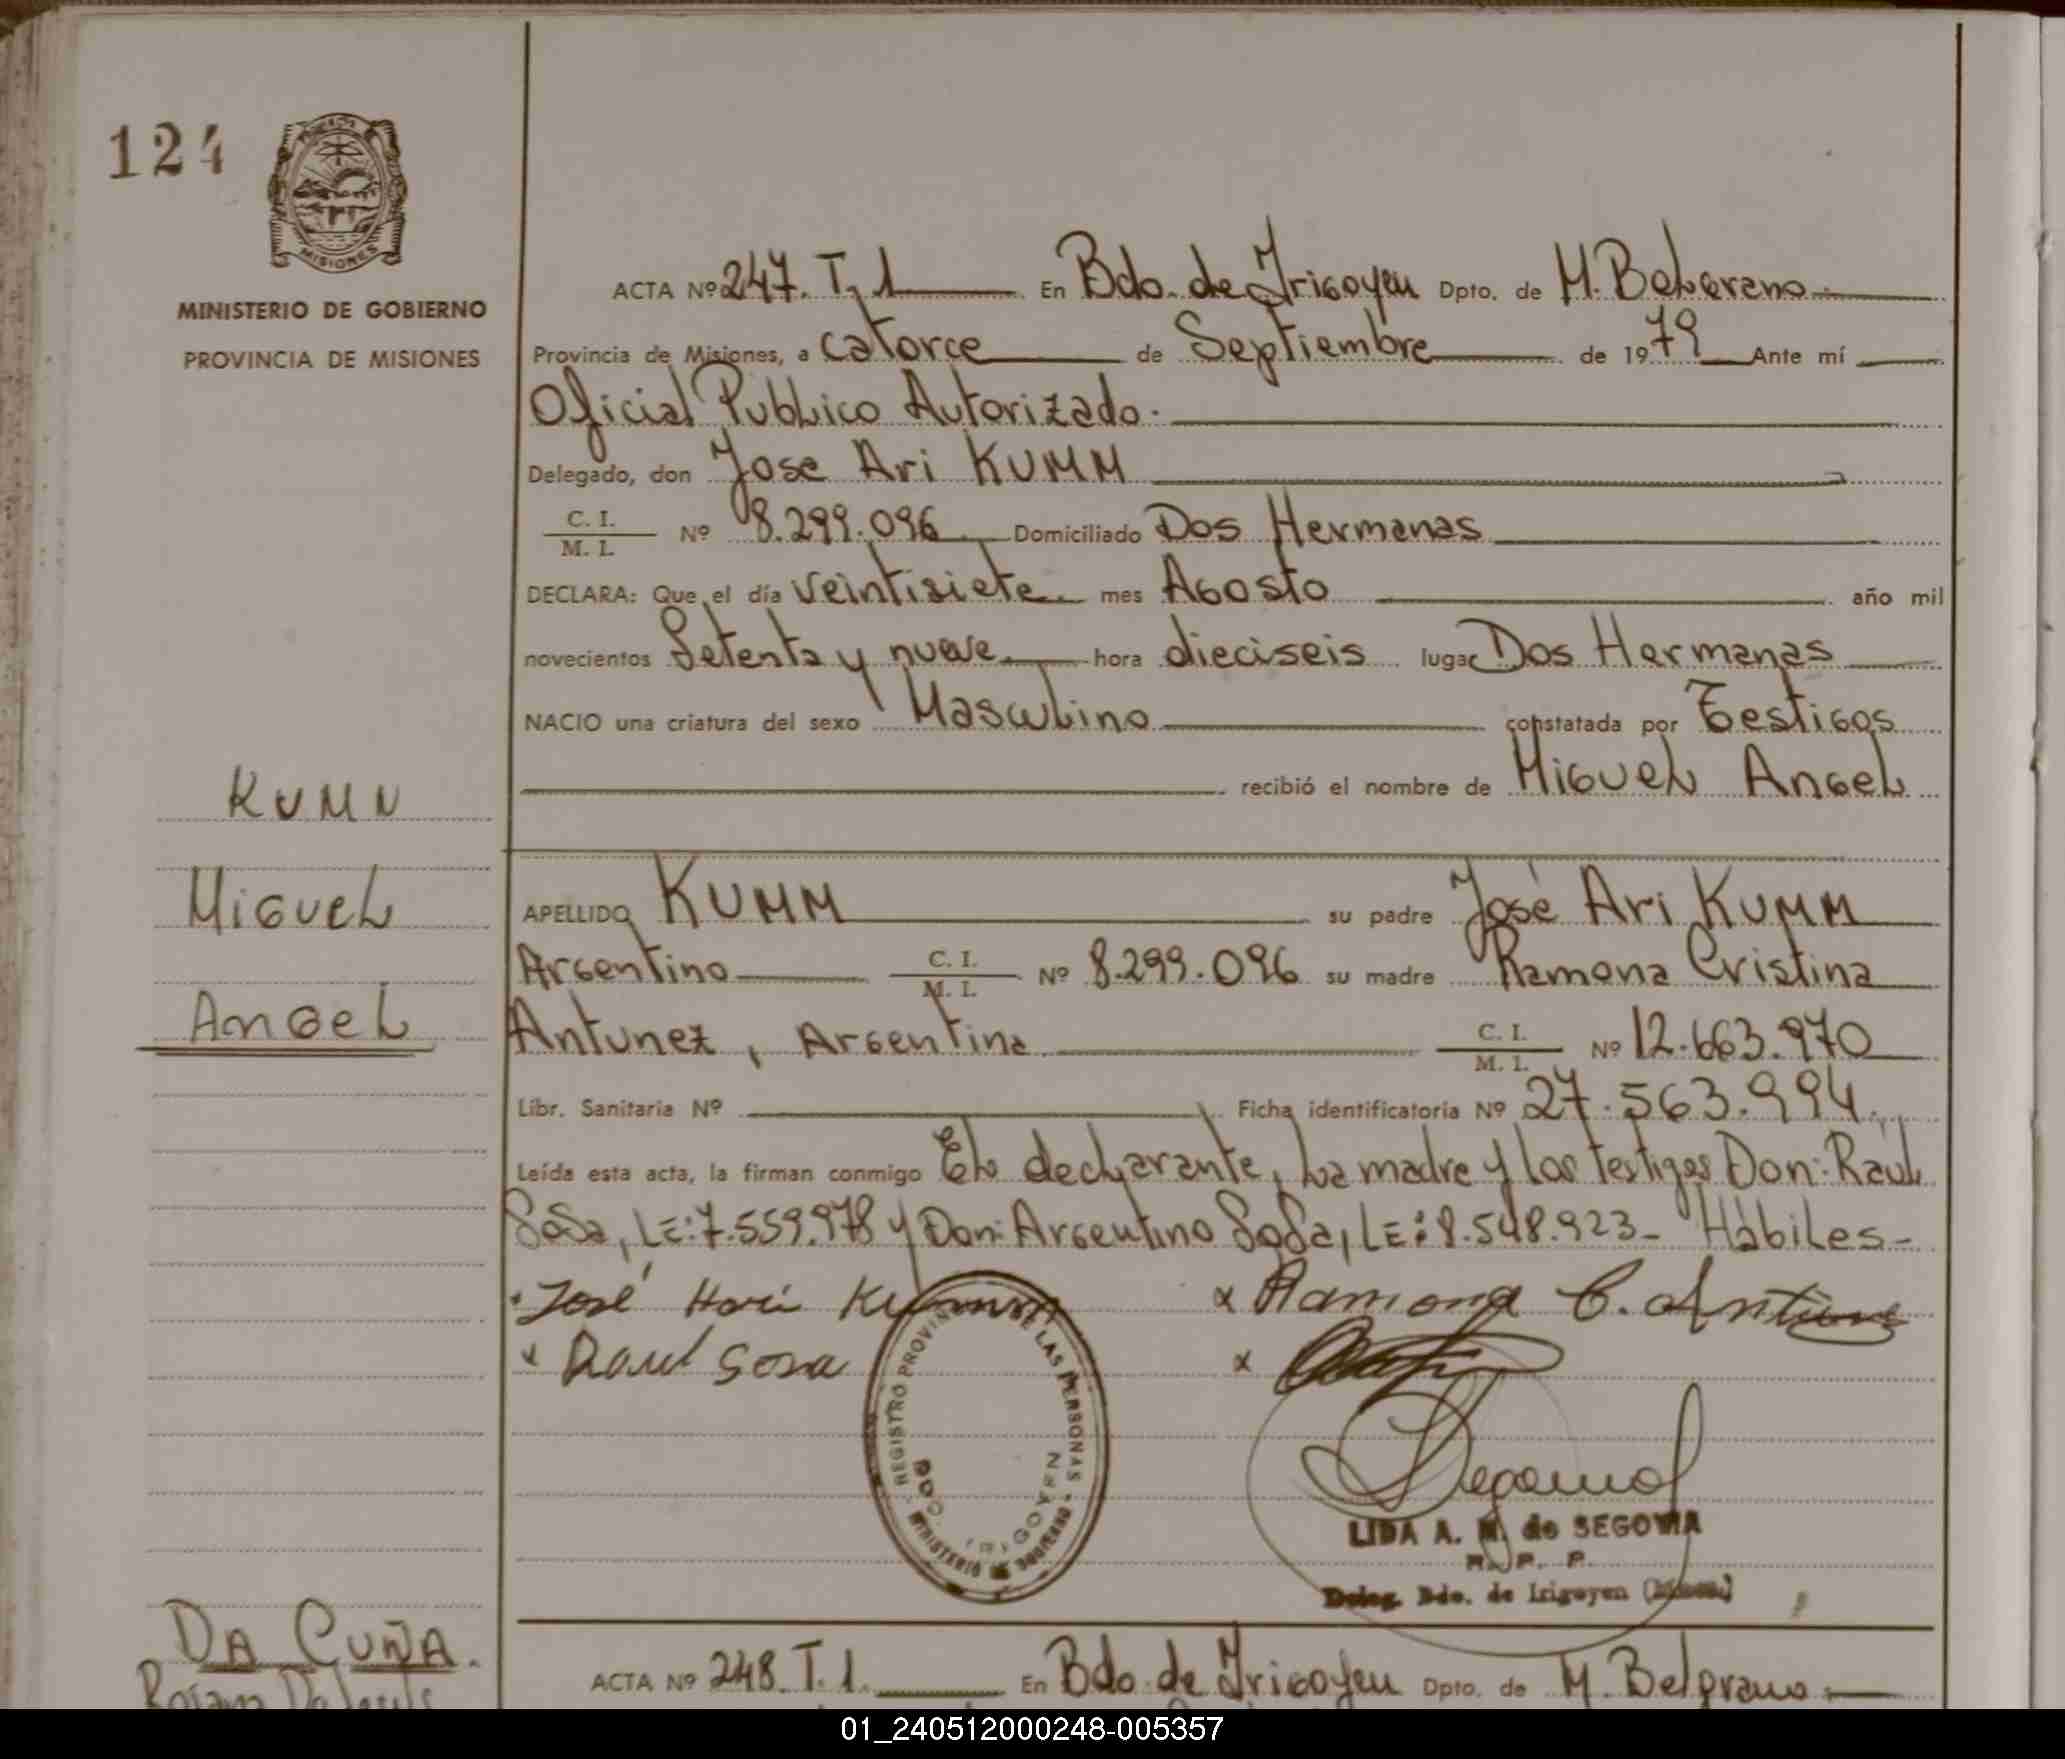 124
MISIONES
MINISTERIO DE GOBIERNO
PROVINCIA DE MISIONES
ACTA Nº 247. T. 1 En Bdo. de Irigoyen Dpto. de M. Belgrano
Provincia de Misiones, a catorce de Septiembre de 1979 Ante mí
Oficial Publico Autorizado.
Delegado, don Jose Ari KUMM
C. I.
M. I. Nº 8.299.096 Domiciliado Dos Hermanas
DECLARA: Que el día veintisiete mes Agosto año mil
novecientos Setenta y nueve hora dieciseis lugar Dos Hermanas
NACIO una criatura del sexo Masculino constatada por Testigos
recibió el nombre de Miguel Angel
KUMM
Miguel
Angel
APELLIDO KUMM su padre José Ari KUMM
Argentino C. I.
M. I. Nº 8.299.096 su madre Ramona Cristina
Antunez, Argentina C. I.
M. I. Nº 12.663.970
Libr. Sanitaria Nº Ficha identificatoria Nº 27.563.994.
Leída esta acta, la firman conmigo El declarante, La madre y los testigos Don: Raul
Sosa, LE: 7.559.978 y Don: Argentino Sosa, LE: 8.548.923- Hábiles-
José Hari Kumm x Ramona C. Antune
x Raul Sosa x
REGISTRO PROVINCIAL DE LAS PERSONAS
MINISTERIO DE GOBIERNO
BDO. IRIGOYEN
Segovia
LIDA A. M. de SEGOVIA
R. P. P.
Deleg. Bdo. de Irigoyen (Mnes.)
DA CUÑA.
ACTA Nº 248. T. 1. En Bdo. de Irigoyen Dpto. de M. Belgrano
01_240512000248-005357